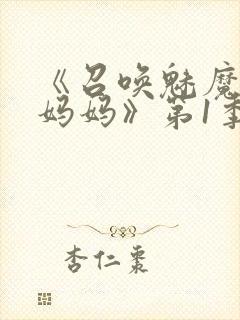 《召唤魅魔
妈妈》第1季
杏仁枣